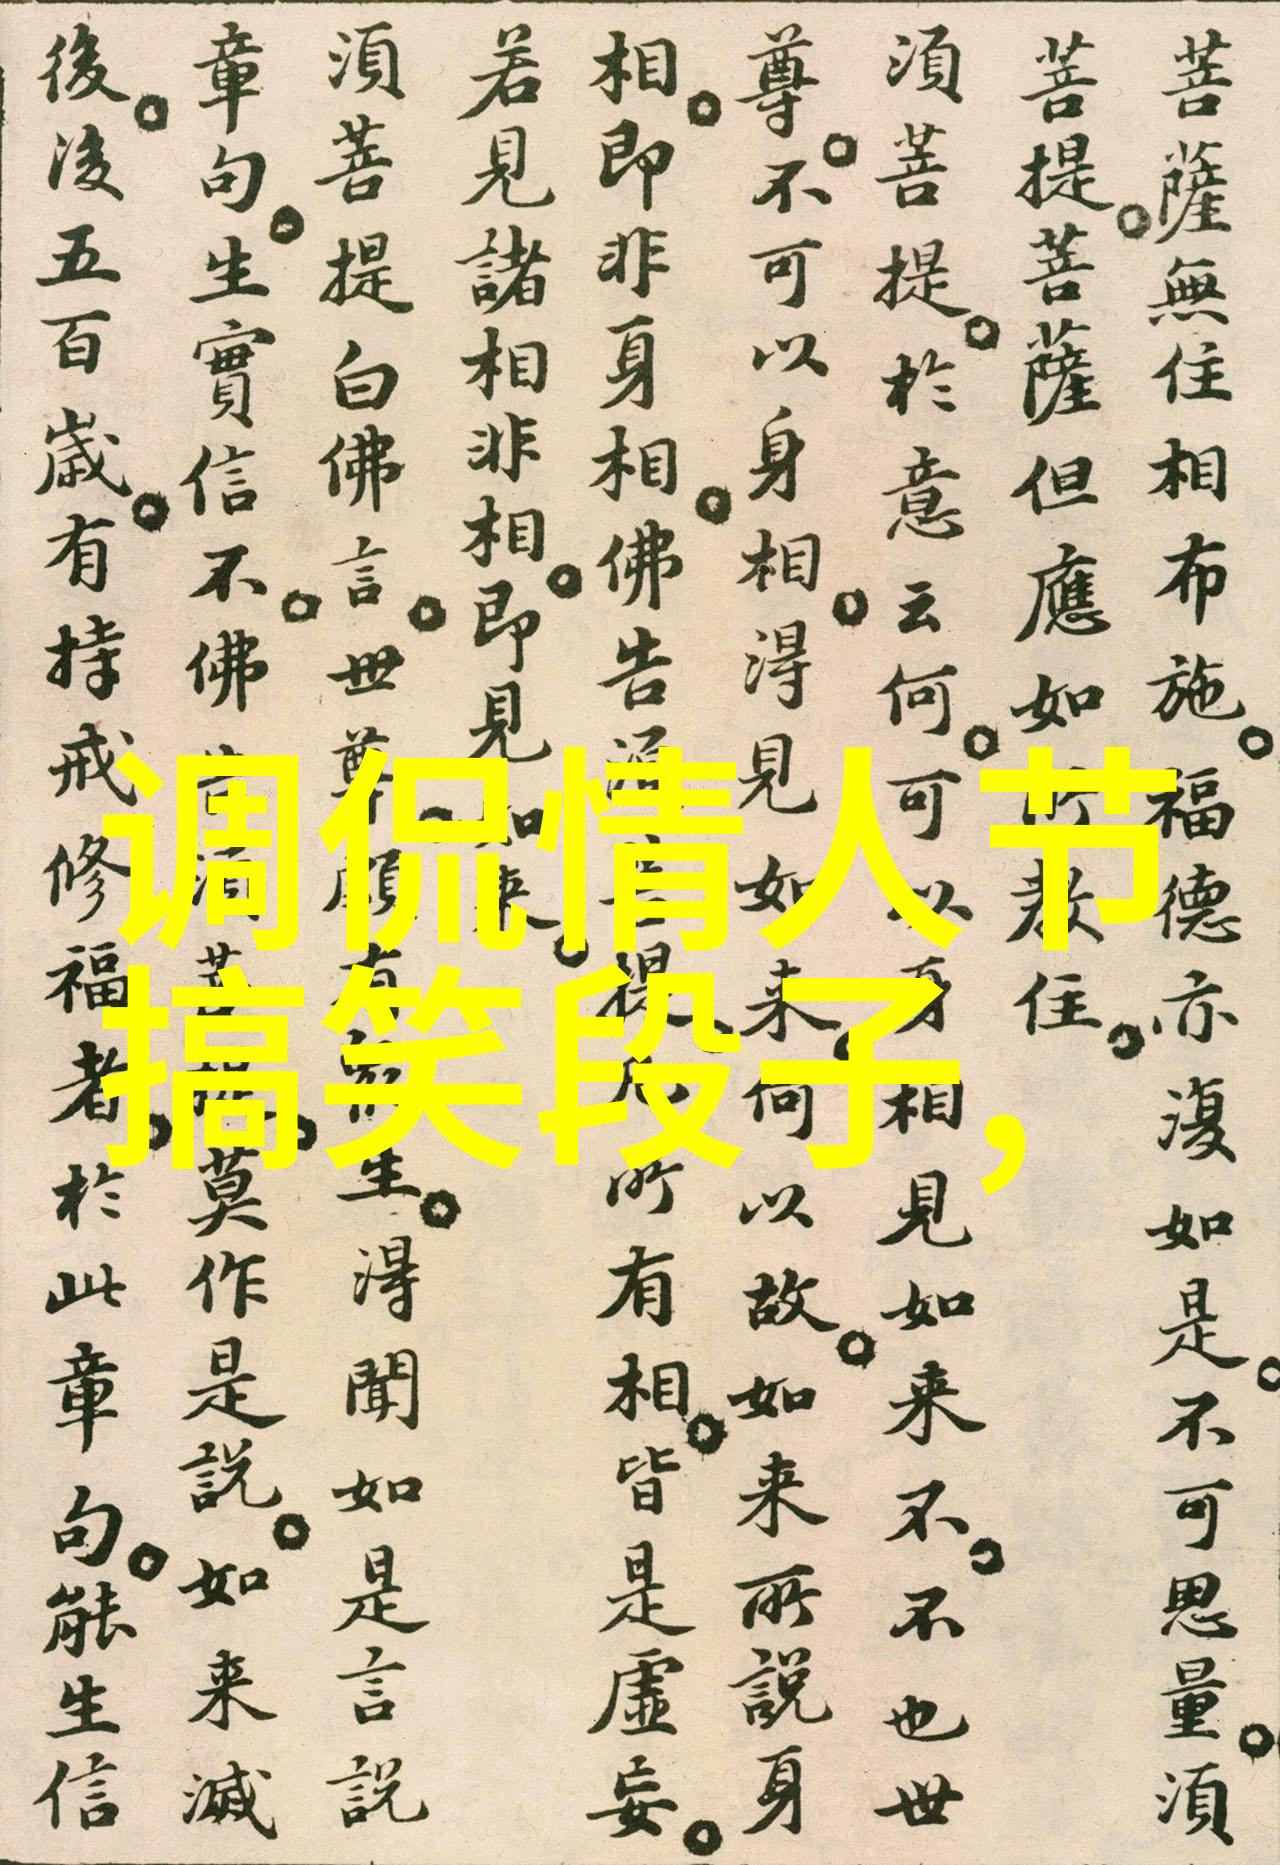 菩薩無住相布施。福德亦復如是。不可思量。須
菩提。菩薩但應如所教住。
須菩提。於意云何。可以身相見如来不。不也世
尊。不可以身相。得見如来。何以故。如来所說身
相。即非身相。佛告須菩提。凡所有相。皆是虛妄。
若見諸相非相。即見如来。
須菩提白佛言。世尊。頗有衆生。得聞如是言說
章句。生實信不。佛告須菩提。莫作是說。如来滅
後。後五百歲。有持戒修福者。於此章句。能生信
调侃情人节
搞笑段子,